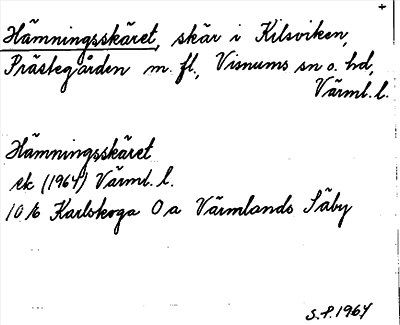 +
Hämningsskäret, skär i Kilsviken,
Prästegården m. fl., Visnums sn o. hd,
Värml. l.
Hämningsskäret
ek (1964) Värml. l.
10 E Karlskoga O a Värmlands Säby
S.P. 1964